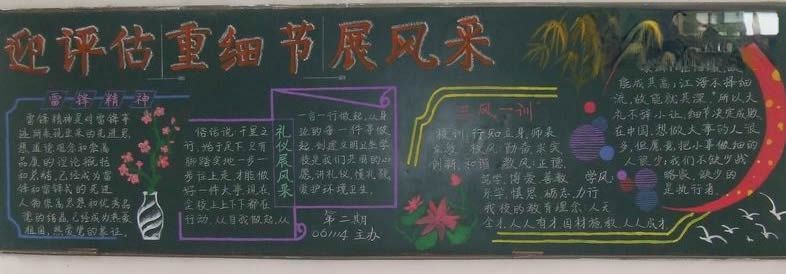 迎评估重细节展风采
雷锋精神
雷锋精神是对雷锋事
迹所表现出来的先进思
想道德观念和崇高
品质的理论概括
和总结,已经成为雷
锋和雷锋式的先进
人物崇高思想和优秀品
德的结晶,已经成为热爱
祖国、热爱党的象征。
俗话说:千里之
行,始于足下。只有
脚踏实地一步一
步往上走才能做
好一件大事。现在
全校上上下下都在
行动,从自我做起,从
礼仪展风采
一言一行做起,从身
边的每一件事做
起。创建文明卫生学
校是我们美丽的心
愿,讲礼仪、懂礼貌、
爱护环境卫生。
第二期
061114主办
三风一训
校训:行知立身,师表
立范 校风:勤奋求实
创新、和谐 教风:正德、
笃学、博爱、善教
学风:
乐学、慎思、励志、力行
我校的教育理念:人无
全才人人有才因材施教人人成才
能成其高;江海不择细
流,故能就其深。”所以,大
礼不辞小让,细节决定成败
在中国,想做大事的人很
多,但愿意把小事做细的
人很少;我们不缺少战
略家,缺少的
是执行者。